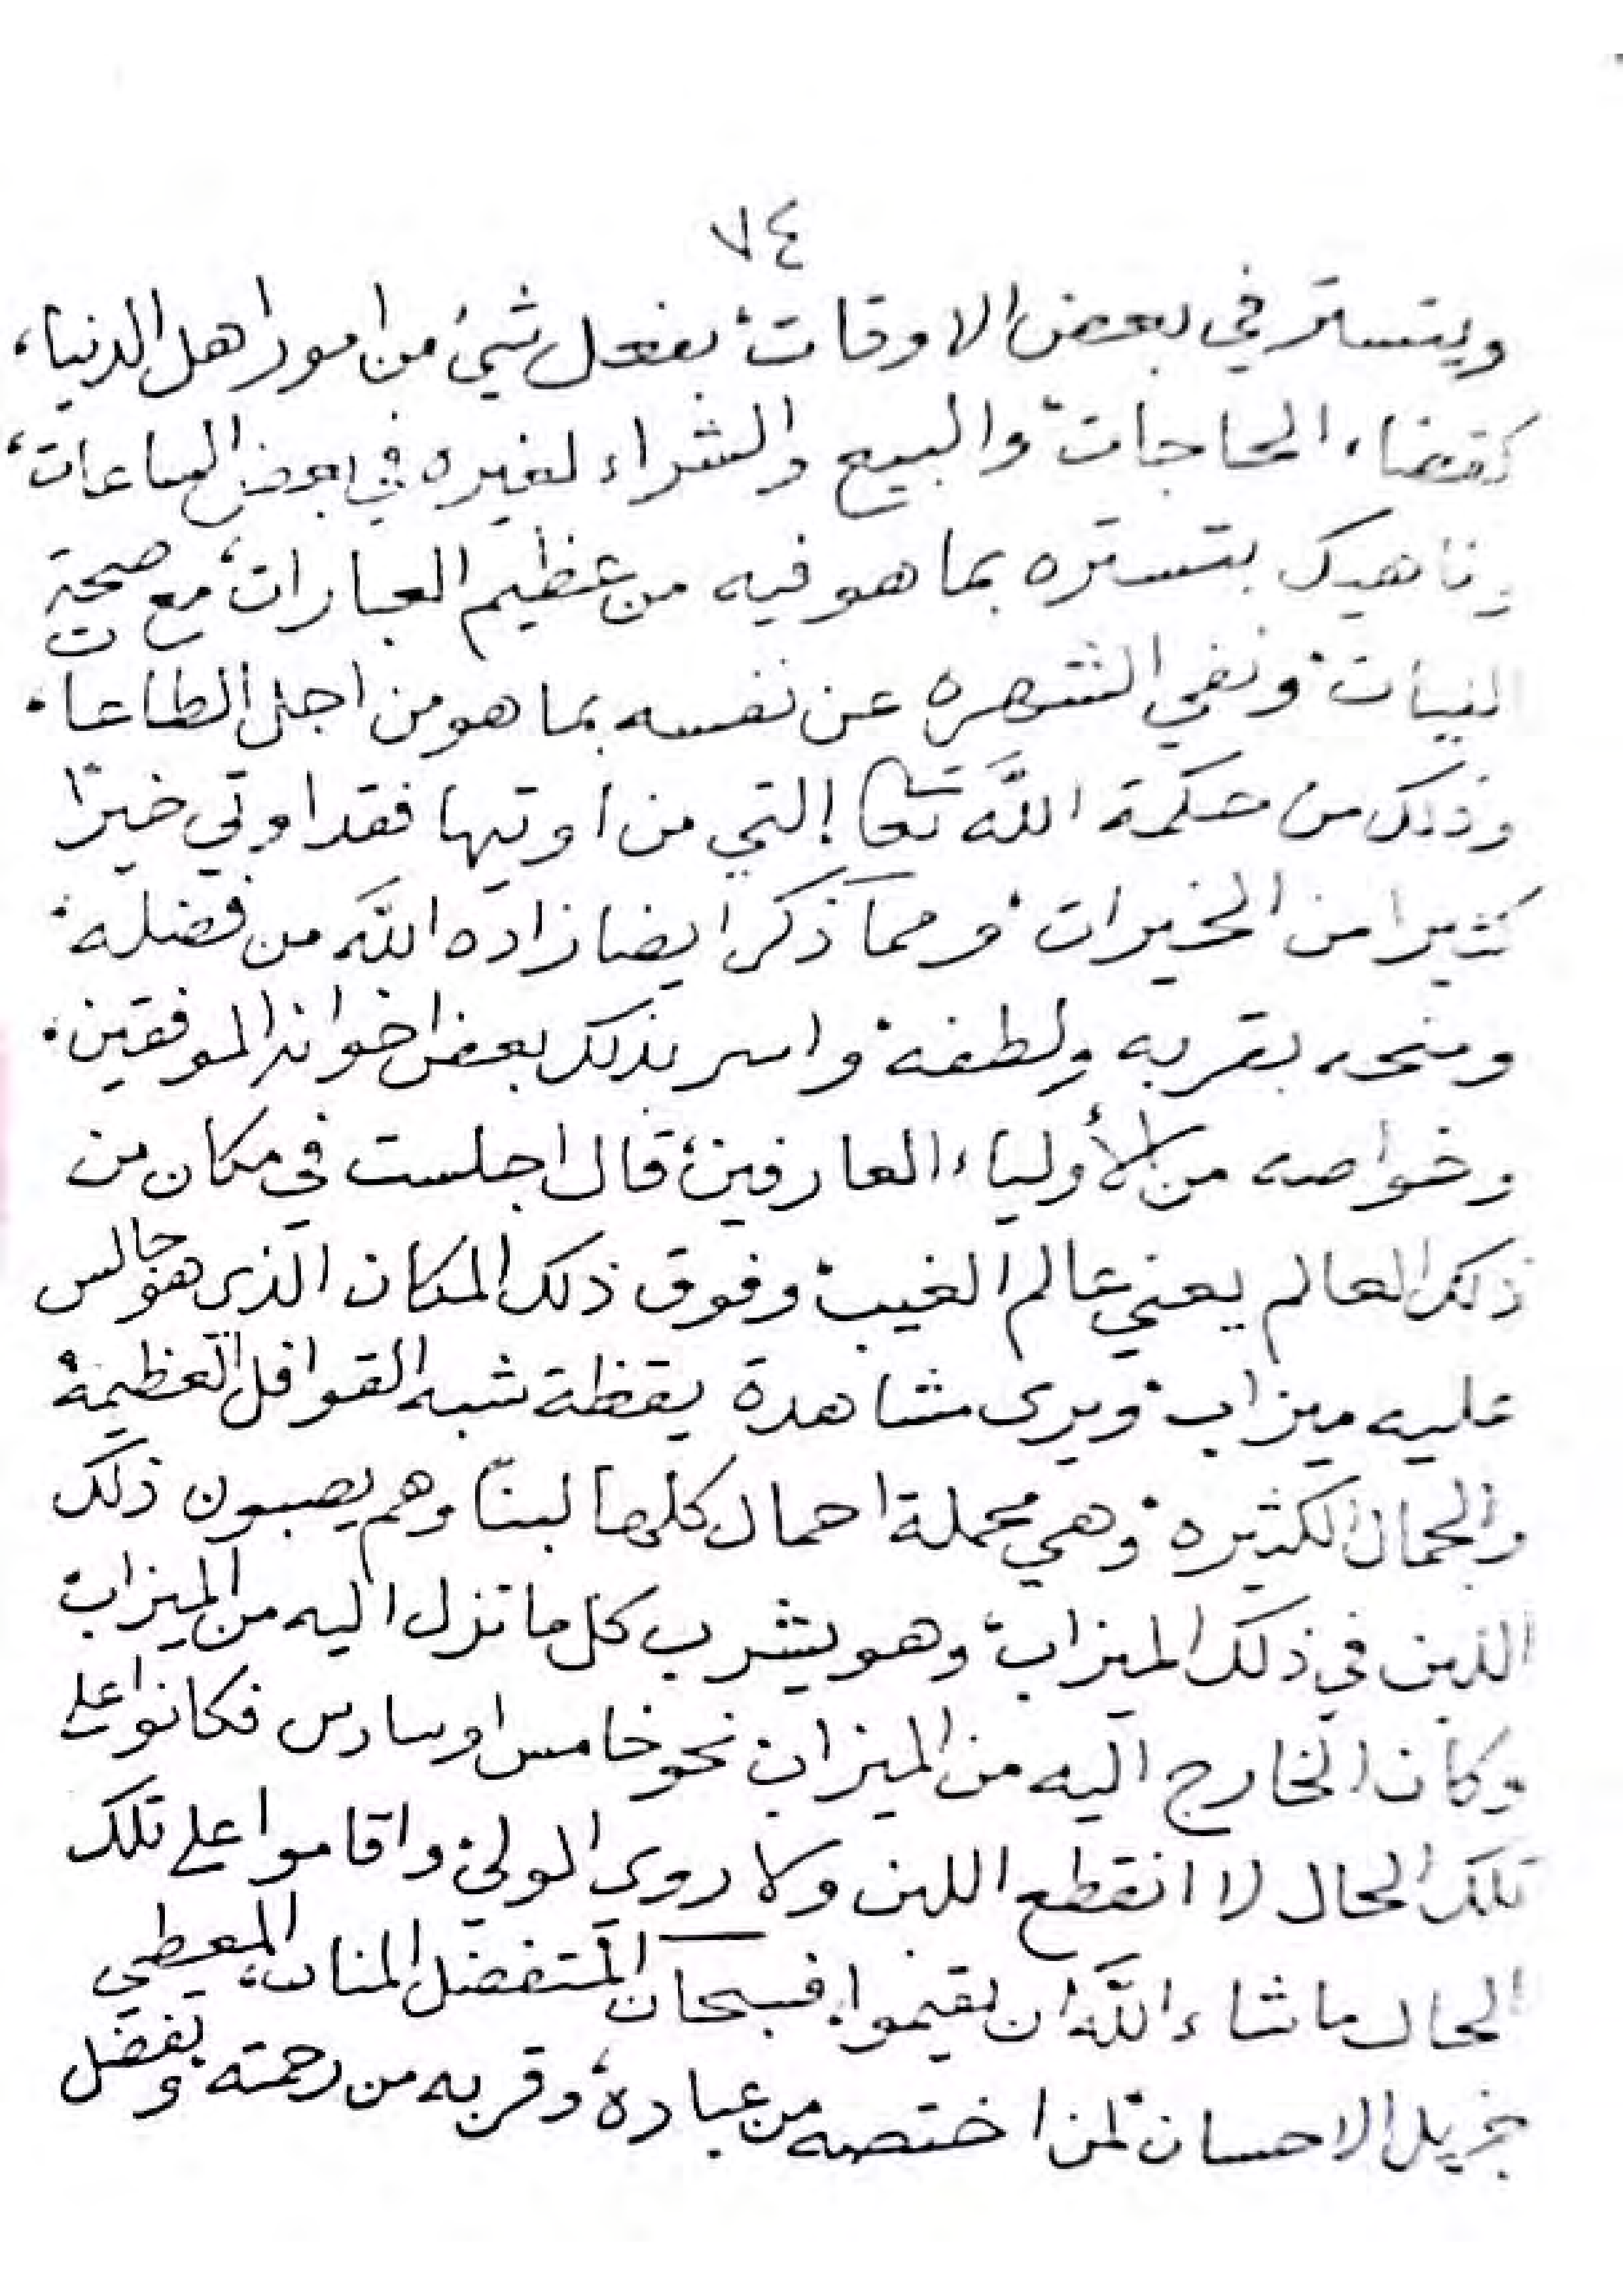 ٧٤
ويتستر في بعض الاوقات، بفعل شيء من امور اهل الدنيا،
كقضاء الحاجات، والبيع والشراء لغيره في بعض الساعات،
وناهيك بتستره بما هو فيه من عظيم العبارات، مع صحة
النيات، ونفي الشهره عن نفسه بما هو من اجل الطاعات.
وذلك من حكمة الله تعا التي من اوتيها فقد اوتي خيرًا
كثيرا من الخيرات، ومما ذكر ايضا زاده الله من فضله.
ومنحه بقربه ولطفه، واسر بذلك بعض اخوانه الموفقين.
وخواصه من الأولياء العارفين، قال اجلست في مكان من
ذلك العالم يعني عالم الغيب، وفوق ذلك المكان الذي هو جالس
عليه ميزاب، ويرى مشاهدة يقظة شبه القوافل العظيمة
والجمال الكثيره، وهي محملة احمال كلها لبنًا وهم يصبون ذلك
اللبن في ذلك الميزاب، وهو يشرب كل ما نزل اليه من الميزاب
وكان الخارج اليه من الميزاب نحو خامس او سادس فكانوا على
تلك الحال لا انقطع اللبن ولا روى الولي، واقاموا على تلك
الحال ما شاء الله ان يقيموا. فسبحان المتفضل المنان، المعطي
بجزيل الاحسان، لمن اختصه من عباده، وقربه من رحمته، وبفضل